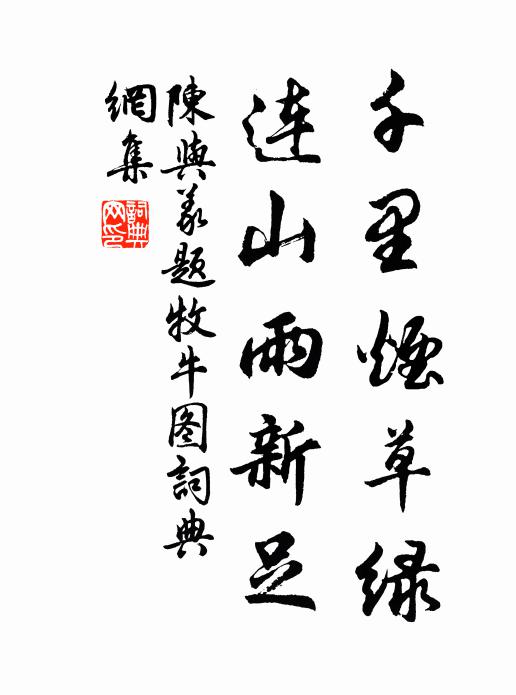 千里煙草綠
連山雨新足
陳與義題牧牛图詞典
網集
詞典網印